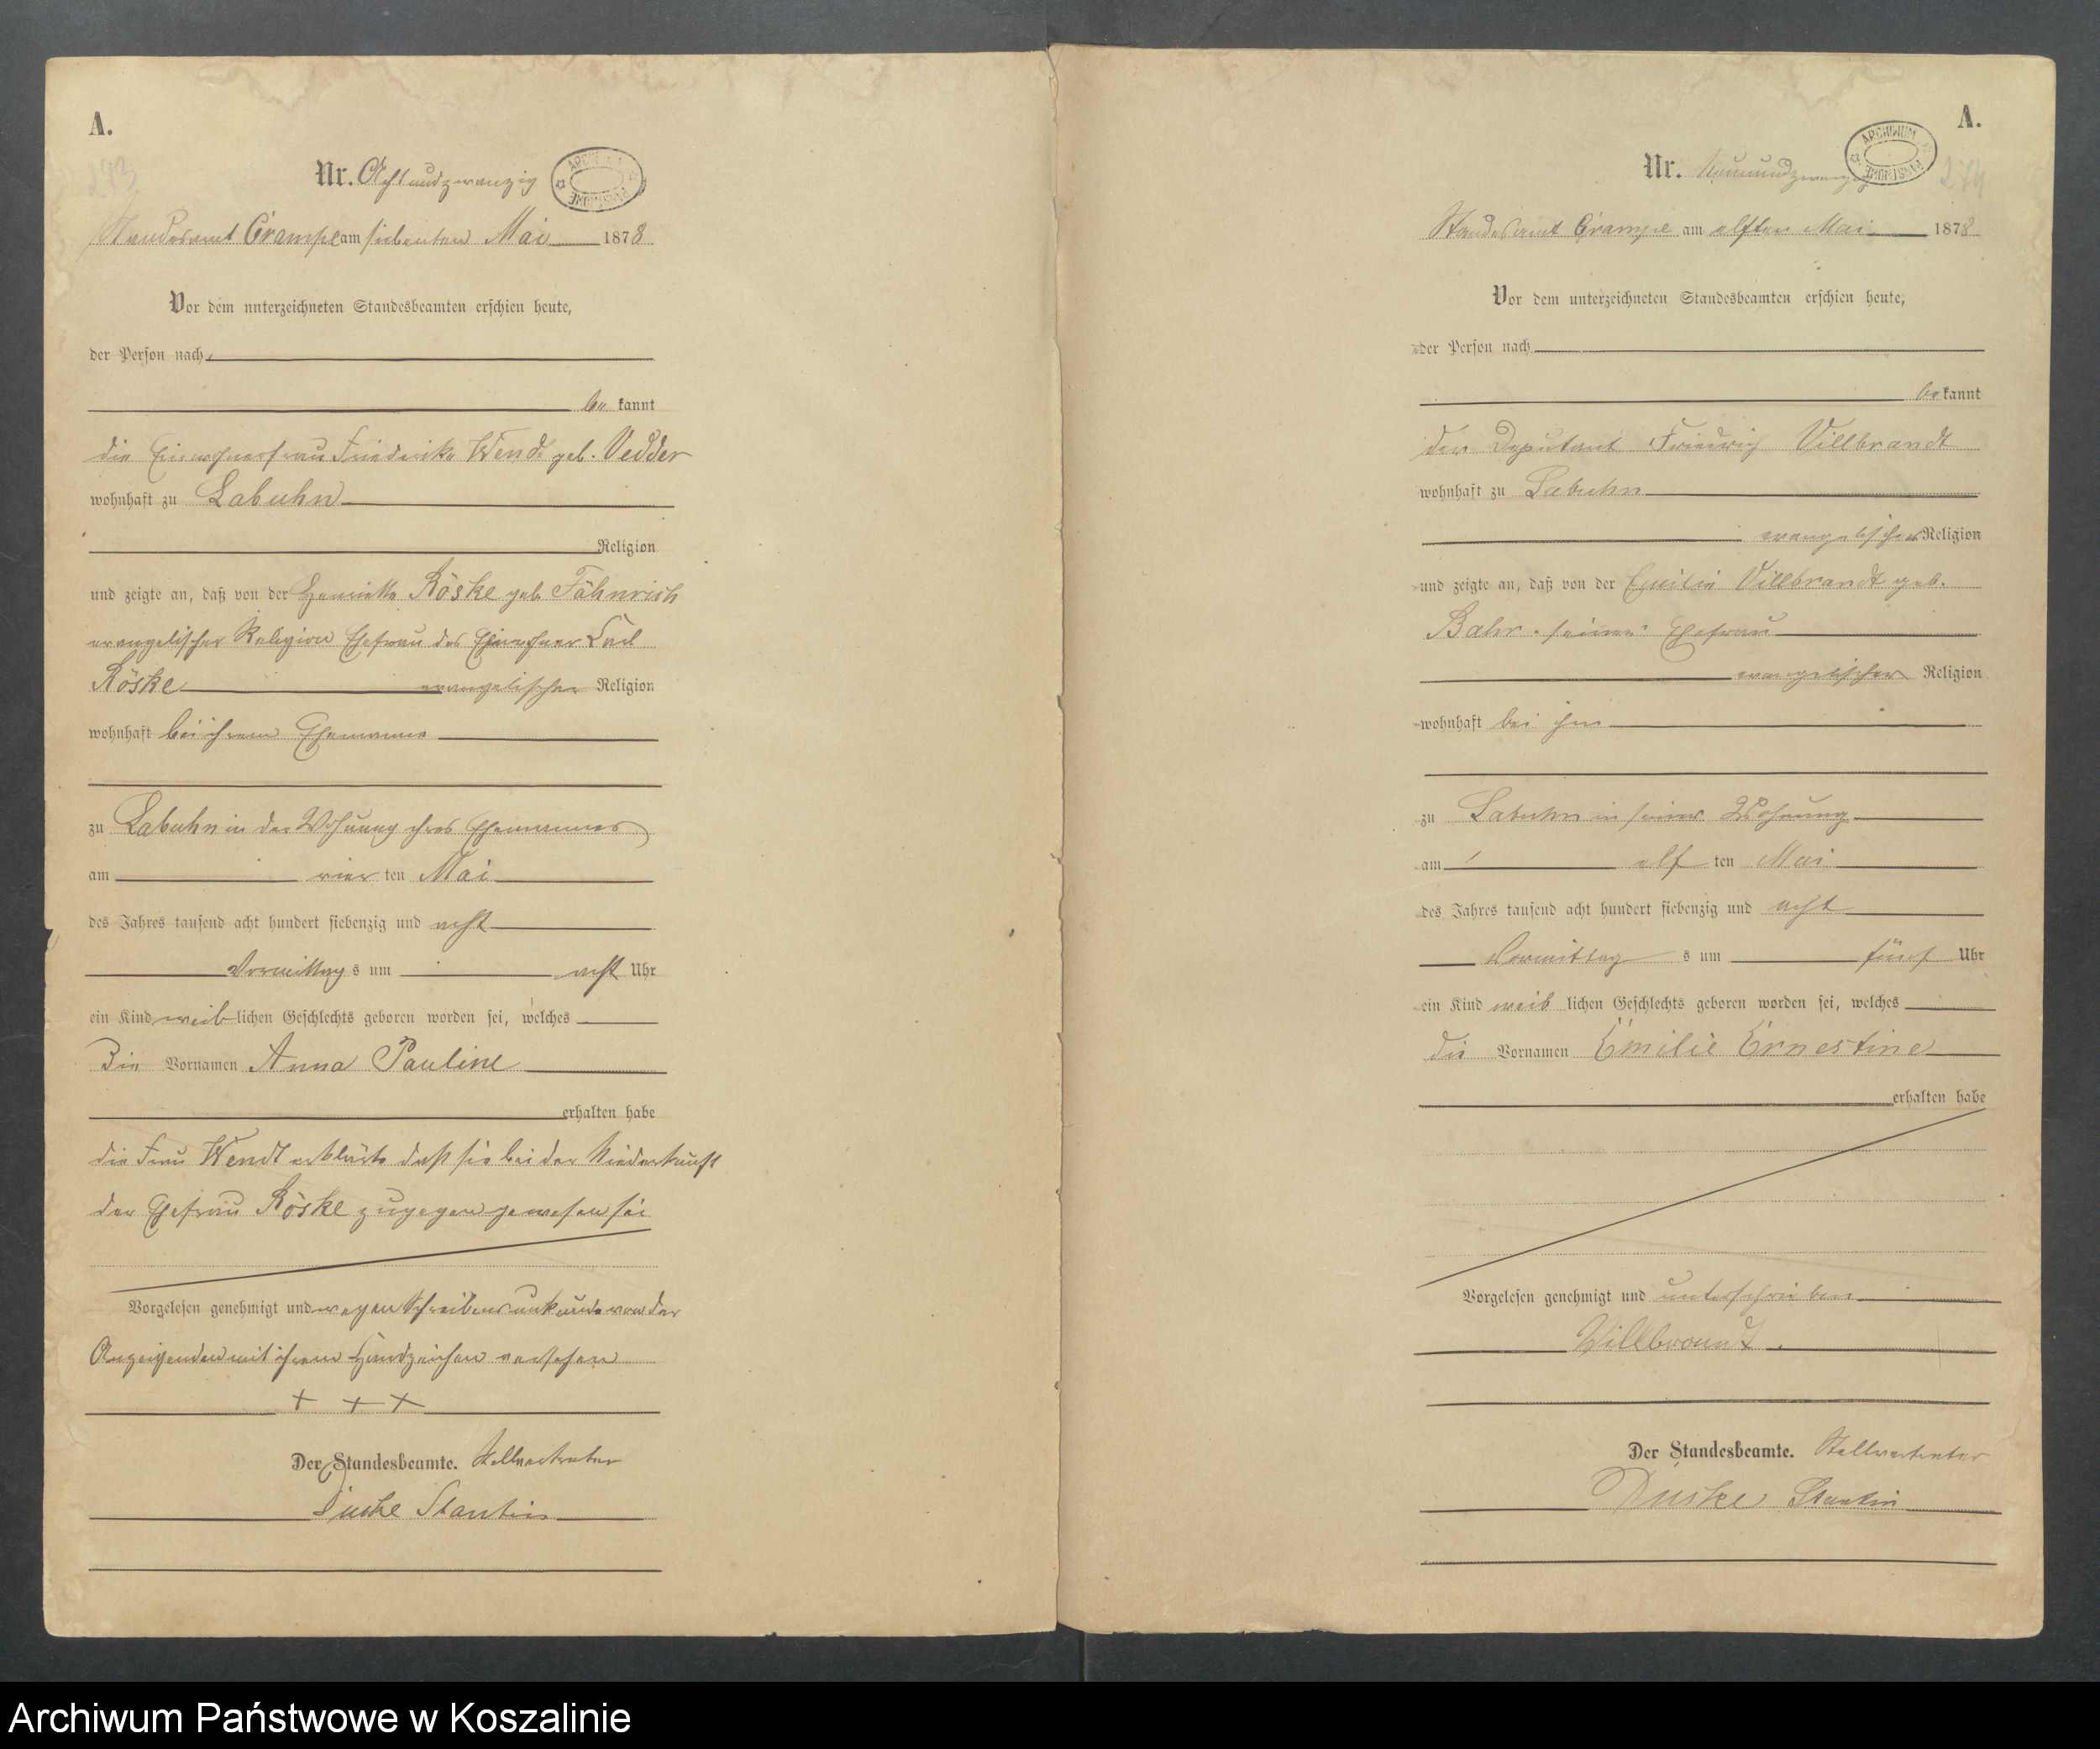 A.
273
Nr. Achtundzwanzig
Standesamt Crampe am siebenten Mai 1878
Vor dem unterzeichneten Standesbeamten erschien heute,
der Person nach
be kannt
die Einwohnerfrau Friederike Wendt geb. Vedder
wohnhaft zu Labuhn
Religion
und zeigte an, daß von der Henriette Röske geb Fähnrich
evangelischer Religion Ehefrau des Einwohner Carl
Röske evangelischer Religion
wohnhaft bei ihrem Ehemanne
zu Labuhn in der Wohnung ihres Ehemannes
am vier ten Mai
des Jahres tausend acht hundert siebenzig und acht
Vormittag s um acht Uhr
ein Kind weib lichen Geschlechts geboren worden sei, welches
Die Vornamen Anna Pauline
erhalten habe
die Frau Wendt erklärte daß sie bei der Niederkunft
der Ehefrau Röske zugegen gewesen sei
Vorgelesen genehmigt und wegen Schreibensunkunde von der
Anzeigenden mit ihrem Handzeichen versehen
+ + +
Der Standesbeamte. Stellvertreter
Püske Stantin
A.
274
Nr. Neunundzwanzig
Standesamt Crampe am elften Mai 1878
Vor dem unterzeichneten Standesbeamten erschien heute,
der Person nach
be kannt
der Deputant Friedrich Villbrandt
wohnhaft zu Labuhn
evangelischer Religion
und zeigte an, daß von der Emilie Villbrandt geb.
Bahr seiner Ehefrau
evangelischer Religion
wohnhaft bei ihm
zu Labuhn in seiner Wohnung
am elf ten Mai
des Jahres tausend acht hundert siebenzig und acht
Vormittag s um fünf Uhr
ein Kind weib lichen Geschlechts geboren worden sei, welches
die Vornamen Emilie Ernestine
erhalten habe
Vorgelesen genehmigt und unterschrieben
Villbrandt.
Der Standesbeamte. Stellvertreter
Püske Stantin
Archiwum Państwowe w Koszalinie